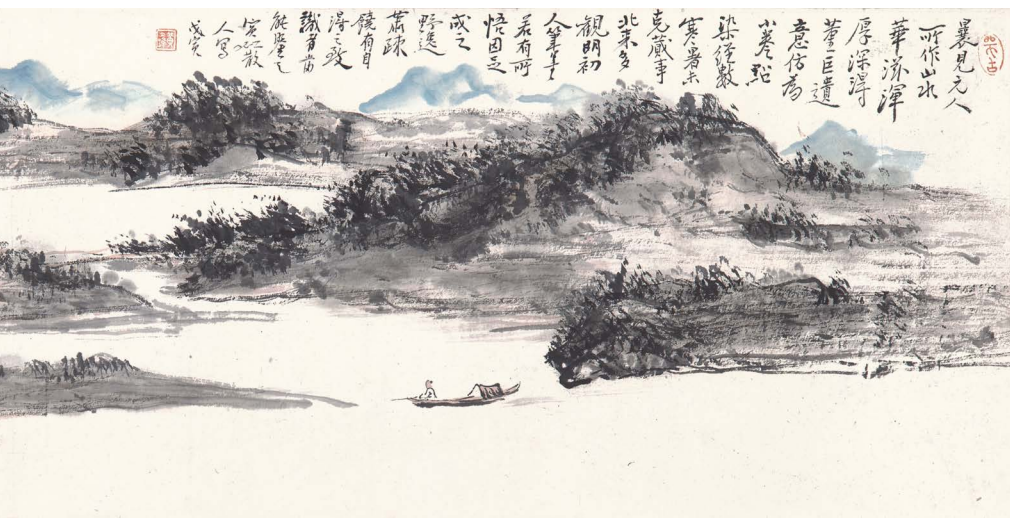 曩見元人
所作山水
華滋渾
厚深得
董巨遺
意仿為
小卷點
染經數
寒暑未
克蕆事
北來多
観明初
人筆
若有所
悟因足
成之
野逸
蕭疎
饒有自
得之致
識者當
能鑒之
賓虹散
人寫
戊寅